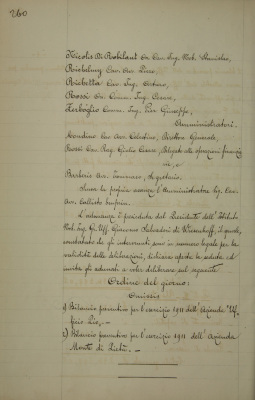 260
Nicolis Di Robilant On. Cav. Ing. Nob. Stanislao,
Cav. Avv.
Ricchetta Cav. Ing.
Rossi Gr. Comm. Ing. Cesare,
Zerboglio Comm. Ing. Pier Giuseppe,
Amministratori.
Mondino Cav. Avv. Celestino, Direttore Generale,
Cav. Rag. Giulio Cesare, Delegato alle operazioni
Barberis Avv. Tommaso, Segretario.
Scusa la propria assenza l'Amministratore Ing. Cav.
Avv. Callisto
L'adunanza è presieduta dal Presidente dell'Istituto
Nob. Ing. Gr. Uff. Giacomo Salvadori di Wiesenhoff, il quale,
constatato che gli intervenuti sono in numero legale per la
validità delle deliberazioni, dichiara aperta la seduta ed
invita gli adunati a voler deliberare sul seguente
Ordine del giorno:
1) Bilancio preventivo per l'esercizio 1911 dell'Azienda "Uf-
ficio Pio„. -
2) Bilancio preventivo per l'esercizio 1911 dell'Azienda
Monte di Pietà. -